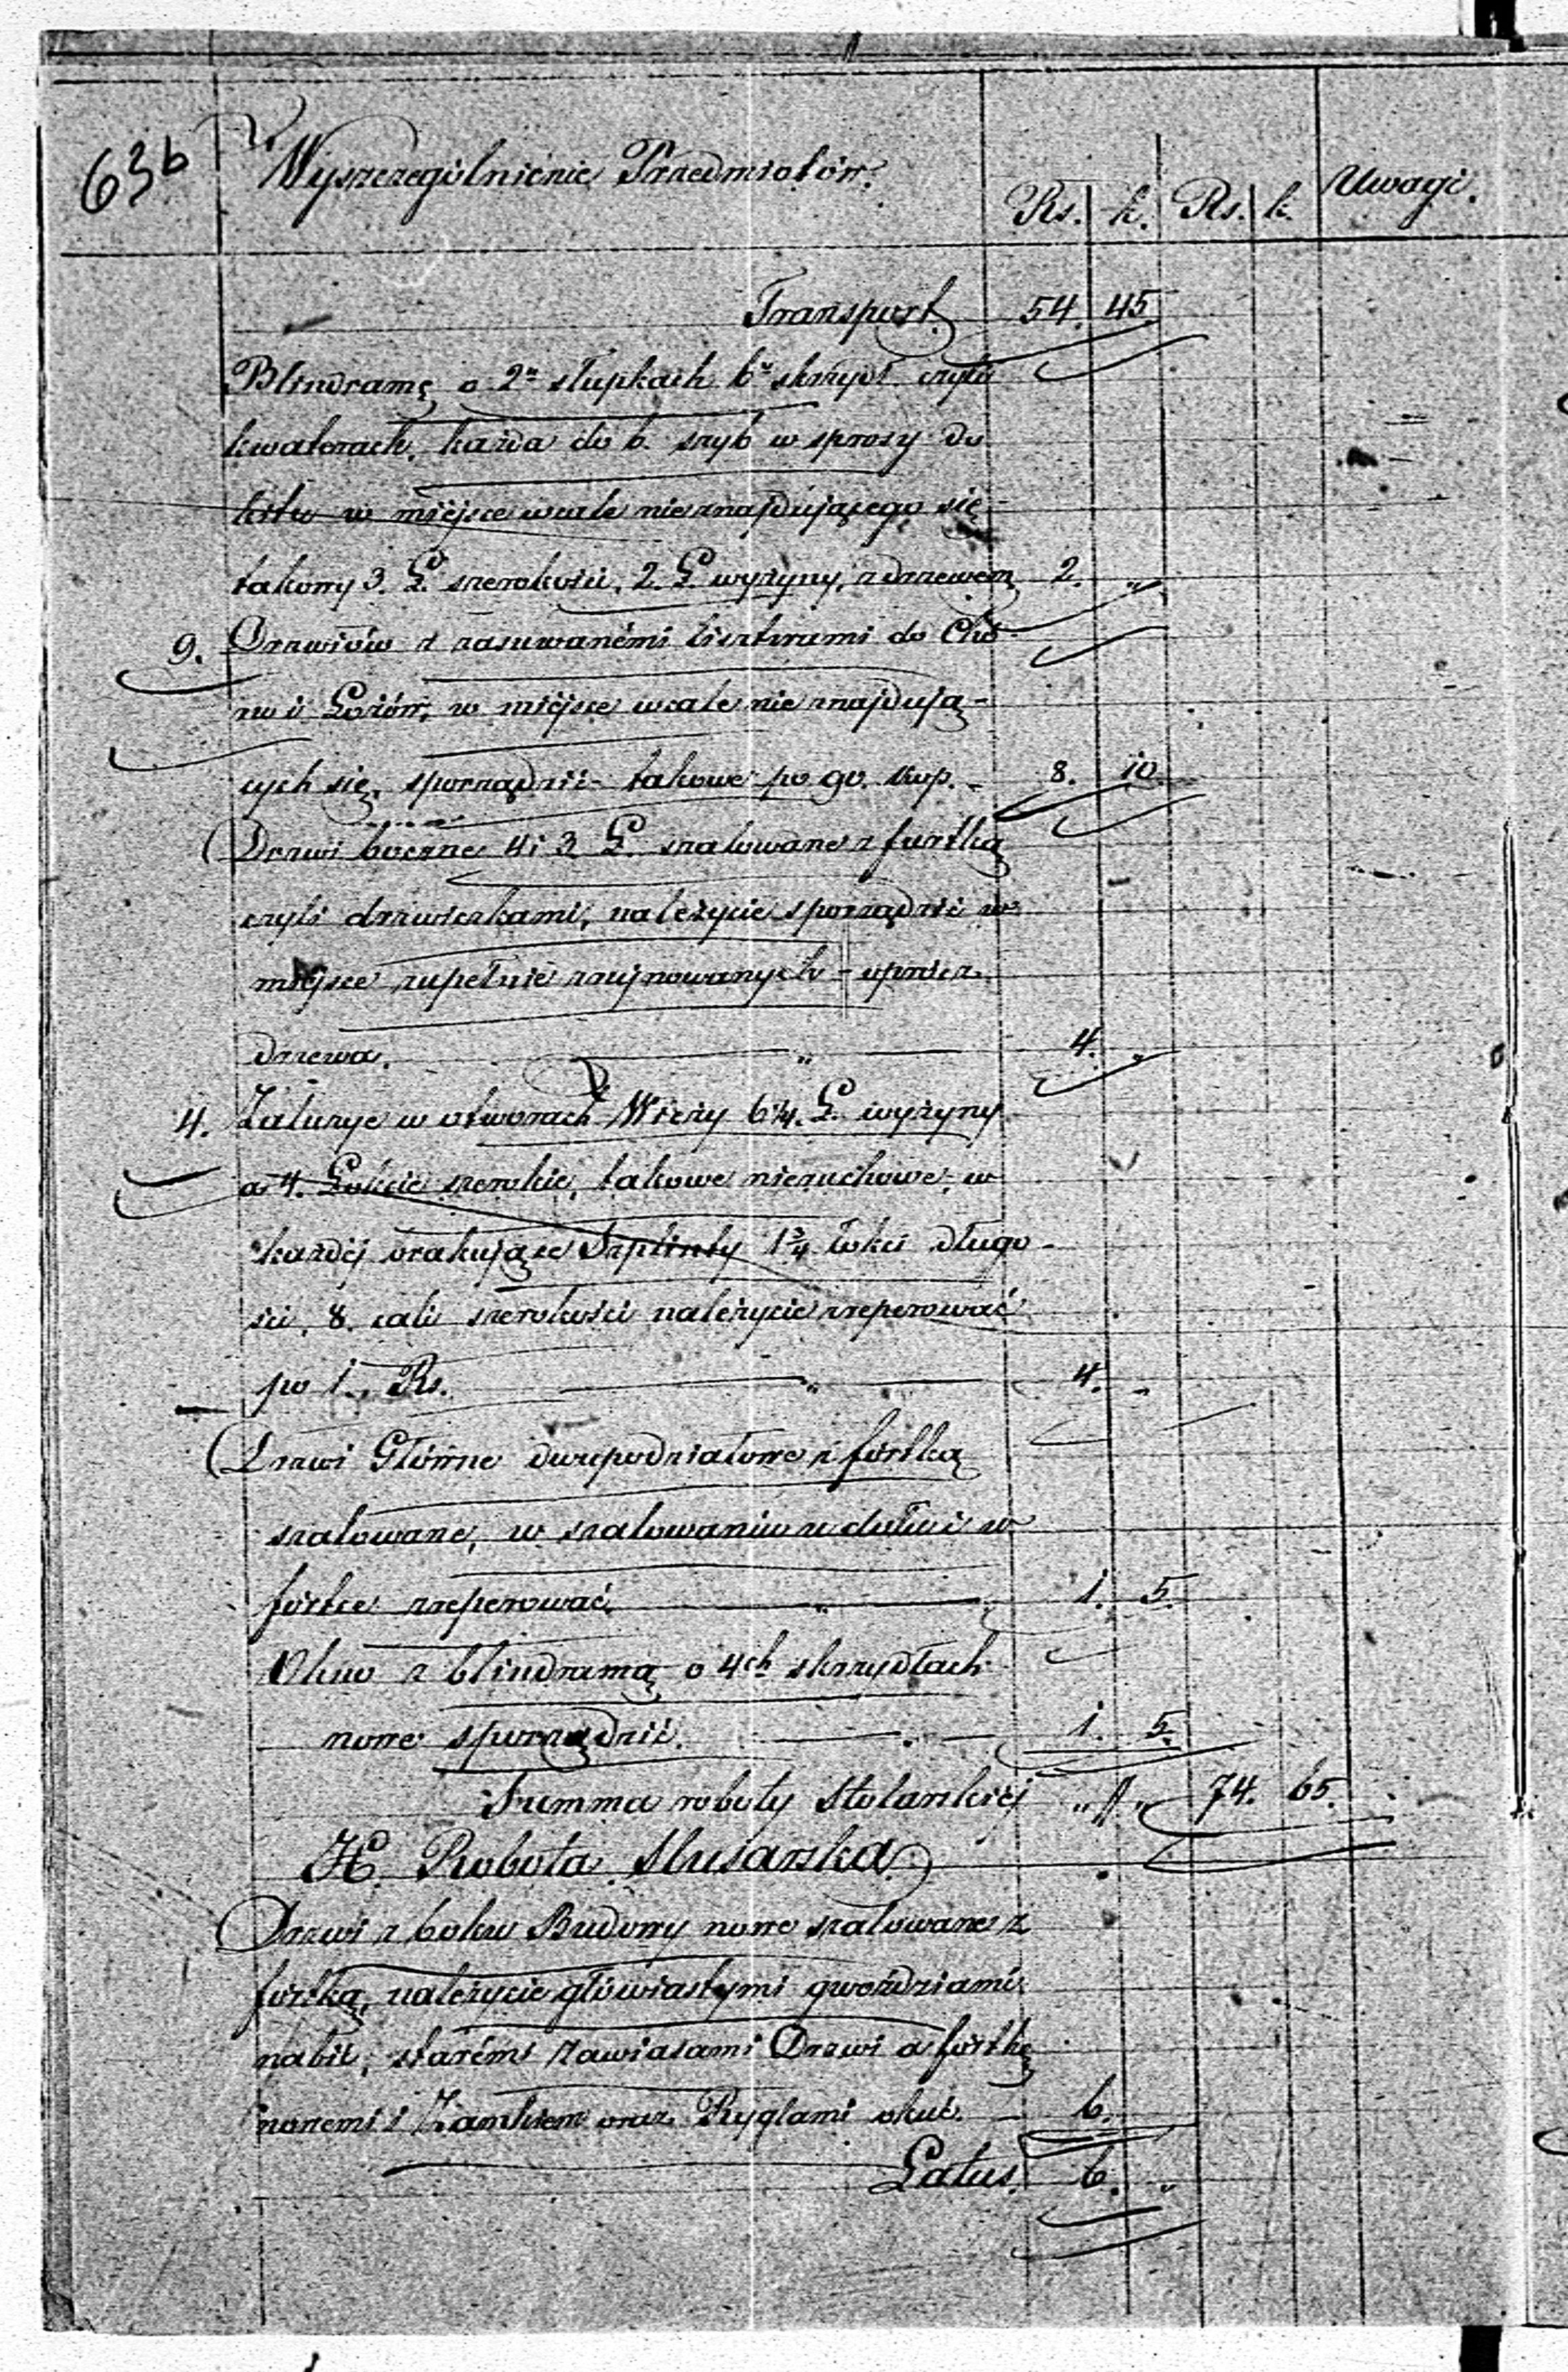 63b Wyszczególnienie Przedmiotów. Rs. k. Rs. k. Uwagi.
Transport. 54. 45
Blindramę o 2ch słupkach 6u skrzydł. czyli
kwaterach, każda do 6. szyb w sprosy do
kitu w miéjsce wcale nieznajdującego się
takowy 3. Ł. szerokości, 2. Ł. wyżyny, z drzewem 2. "
9. Drzwiów z zasuwanémi Lisztwami do Chó-
ru i Lożów, w miéjsce wcale nie znajdują-
cych się, sporządzić takowe po 90. kop. - 8. 10.
Drzwi boczne 4 i 3 Ł. szalowane z furtką
czyli drzwiczkami, należycie sporządzić w
miéjsce zupełnie zrujnowanych - oprócz
drzewa. " 4. "
4. Żaluzye w otworach Wieży 6 1/4. Ł. wyżyny
a 4. Łokcie szerokie, takowe nieruchowe, w
każdéj brakujące Szplinty 1 3/4 łokci długo-
ści, 8. cali szerokości należycie zreperować
po 1. Rs. " 4. "
Drzwi Główne dwupodziałowe z fórtką
szalowane, w szalowaniu u dołu i w
fórtce zreperować " 1. 5.
Okno z blindramą o 4ch skrzydłach
nowe sporządzić. " 1. 5.
Summa roboty Stolarskiéj " // " 74. 65.
H. Robota Slusarska.
Drzwi z boku Budowy nowe szalowane z
fórtką, należycie główiastymi gwoździami
nabić, starémi zawiasami Drzwi a fórtkę
nowemi i Zamkiem oraz Ryglami okuć. - 6.
Latus. 6. "